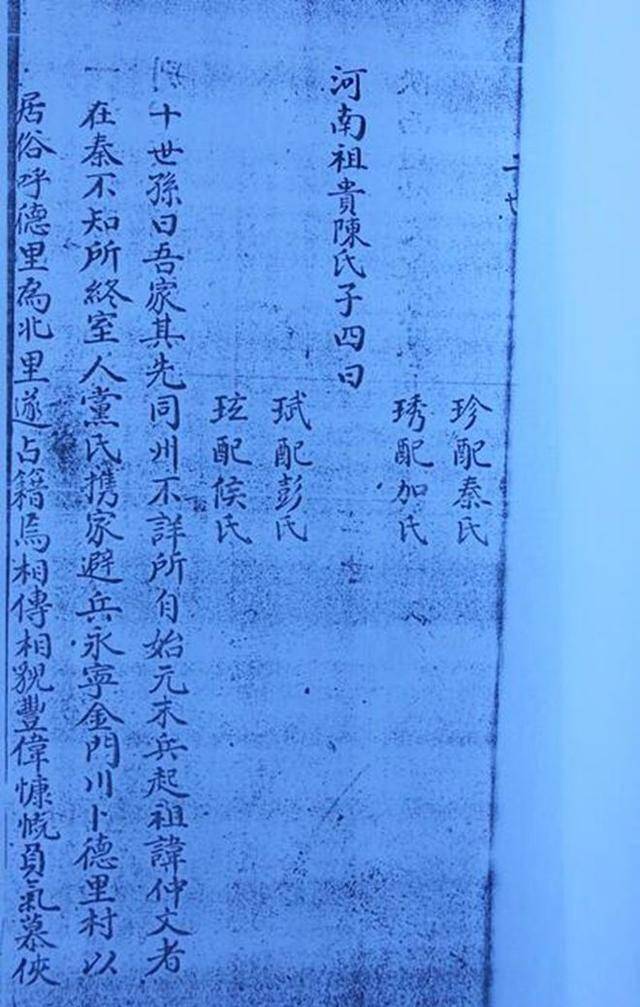 珍配秦氏
琇配加氏
河南祖貴陳氏子四曰
珷配彭氏
玹配侯氏
十世孫曰吾家其先同州不詳所自始元末兵起祖諱仲文者
在秦不知所終室人黨氏携家避兵永寧金門川卜德里村以
居俗呼德里為北里遂占籍焉相傳相貌豐偉慷慨負氣慕俠